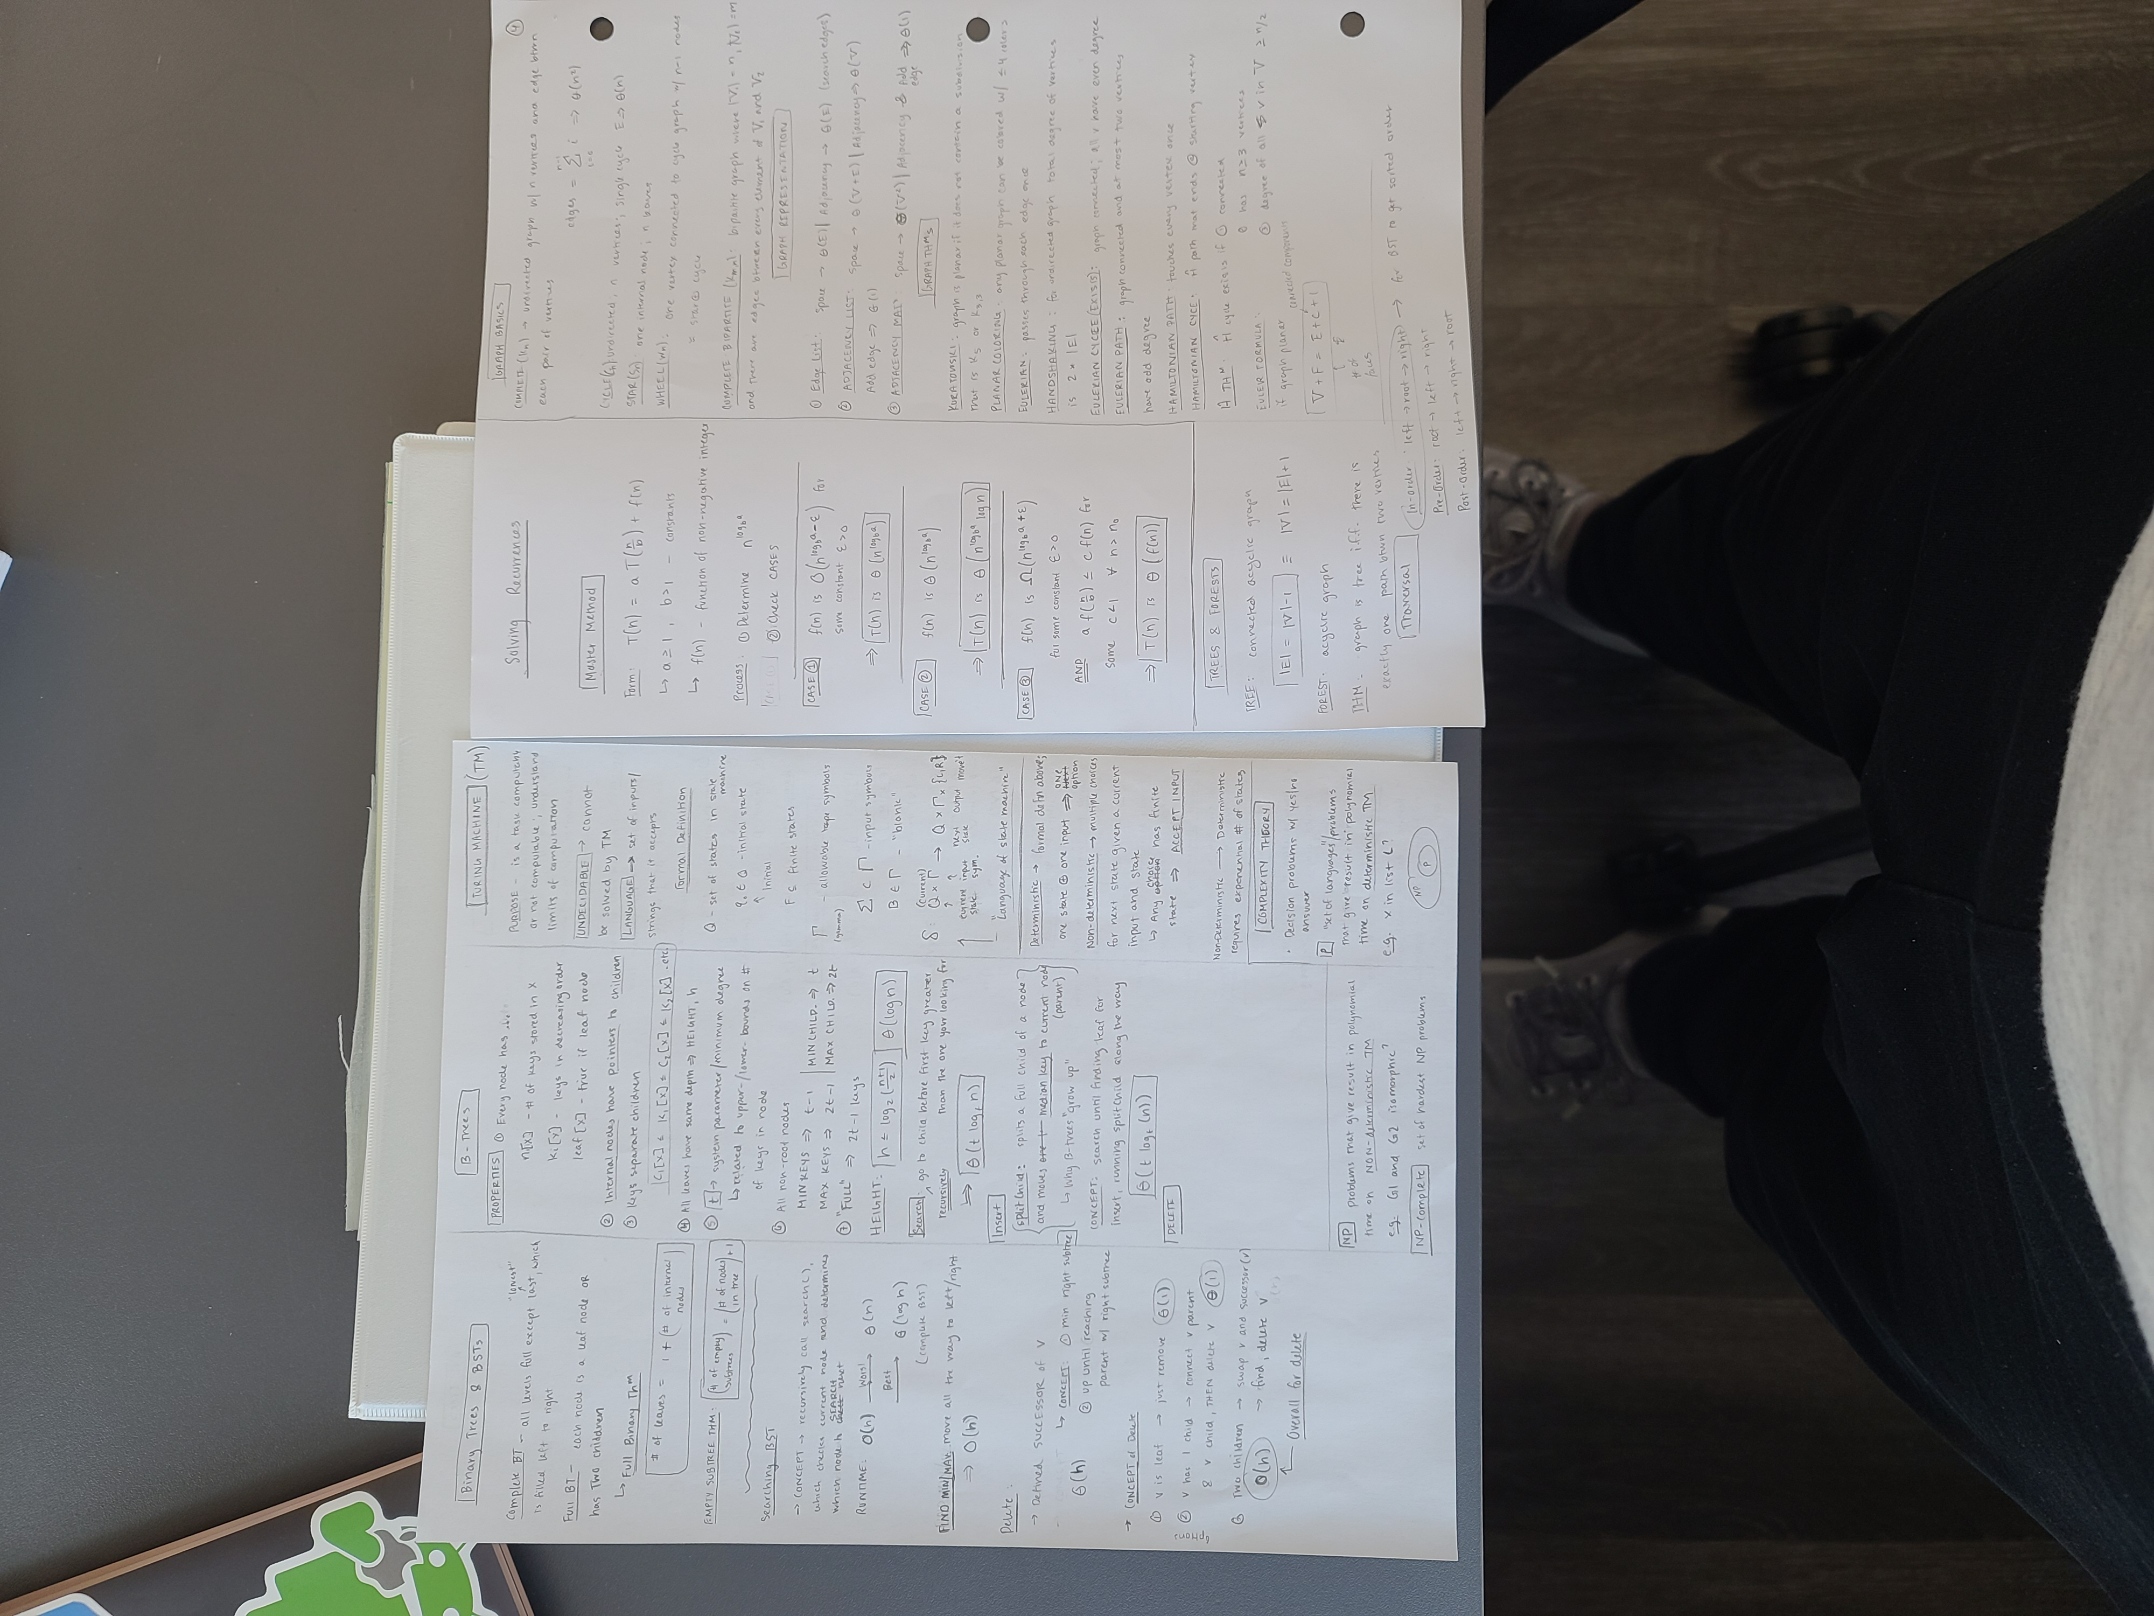 Binary Trees & BSTs
Complete BT - all levels full except last, which
"lowest"
is filled left to right
Full BT - each node is a leaf node OR
has TWO children
↳ Full Binary Thm
# of leaves = 1 + (# of internal nodes)
EMPTY SUBTREE THM: (# of empty subtrees) = (# of nodes in tree) + 1
Searching BST
→ CONCEPT → recursively call search(),
which checks current node and determines
which node to SEARCH next
RUNTIME: O(h) Worst → Θ(n)
Best → Θ(log n)
(complete BST)
FIND MIN/MAX: move all the way to left/right
⇒ O(h)
Delete:
→ Defined SUCCESSOR OF V
↳ CONCEPT: ① min right subtree
Θ(h)
② up until reaching
parent w/ right subtree
→ CONCEPT of Delete
options
① v is leaf → just remove Θ(1)
② v has 1 child → connect v parent
& v child, THEN delete v Θ(1)
③ Two children → swap v and successor(v)
O(h) → find, delete v
Overall for delete
B-Trees
PROPERTIES ① Every node has
n[x] - # of keys stored in x
Ki[x] - keys in decreasing order
leaf[x] - true if leaf node
② Internal nodes have pointers to children
③ Keys separate children
K1[x] ≤ K1[x] ≤ C2[x] ≤ K2[x] ..etc.
④ All leaves have same depth ⇒ HEIGHT, h
⑤ t → system parameter/minimum degree
↳ related to upper-/lower-bounds on #
of keys in node
⑥ All non-root nodes
MIN KEYS ⇒ t-1 | MIN CHILD. ⇒ t
MAX KEYS ⇒ 2t-1 | MAX CHILD. ⇒ 2t
⑦ "FULL" ⇒ 2t-1 keys
HEIGHT: h ≤ log2((n+1)/2) Θ(log n)
Search: go to child before first key greater
recursively than the one your looking for
⇒ Θ(t logt n)
Insert
splitChild: splits a full child of a node
and moves median key to current node
(parent)
↳ Why B-trees "grow up"
CONCEPT: search until finding leaf for
insert, running splitChild along the way
Θ(t logt(n))
DELETE
NP problems that give result in polynomial
time on NON-deterministic TM
e.g. G1 and G2 isomorphic?
NP-complete set of hardest NP problems
TURING MACHINE (TM)
PURPOSE - is a task computable
or not computable; understand
limits of computation
UNDECIDABLE → cannot
be solved by TM
LANGUAGE → set of inputs/
strings that it accepts
Formal Definition
Q - set of states in state
machine
q, ∈ Q - initial state
Initial
F ⊆ finite states
Γ - allowable tape symbols
(gamma)
Σ ⊂ Γ - input symbols
B ∈ Γ - "blank"
(current)
δ: Q × Γ → Q × Γ × {L,R}
current state input sym. next state output mov't
"Language of state machine"
Deterministic → formal defn above;
one state ⊕ one input ⇒ ONE option
Non-deterministic → multiple choices
for next state given a current
input and state
↳ Any choice has finite
state ⇒ ACCEPT INPUT
Non-Deterministic → Deterministic
requires exponential # of states
COMPLEXITY THEORY
• Decision problems w/ yes/no
answer
P "set of languages"/problems
that give result in polynomial
time on deterministic TM
e.g. x in list L?
NP P
Solving Recurrences
Master Method
Form: T(n) = a T(n/b) + f(n)
↳ a ≥ 1, b > 1 - constants
↳ f(n) - function of non-negative integer
Process: ① Determine n^(log_b a)
② Check CASES
CASE ① f(n) is O(n^(log_b a - ε)) for
some constant ε>0
⇒ T(n) is Θ(n^(log_b a))
CASE ② f(n) is Θ(n^(log_b a))
⇒ T(n) is Θ(n^(log_b a) log n)
CASE ③ f(n) is Ω(n^(log_b a + ε))
for some constant ε>0
AND a f(n/b) ≤ c f(n) for
some c<1 ∀ n > n0
⇒ T(n) is Θ(f(n))
TREES & FORESTS
TREE: connected acyclic graph
|E| = |V|-1 ≡ |V| = |E|+1
FOREST: acyclic graph
THM: graph is tree i.f.f. there is
exactly one path btwn two vertices
Traversal
In-order: left → root → right → for BST to get sorted order
Pre-Order: root → left → right
Post-Order: left → right → root
④
GRAPH BASICS
COMPLETE (Kn) → undirected graph w/ n vertices and edge btwn
each pair of vertices
edges = Σ i ⇒ Θ(n²)
n-1
i=0
CYCLE (Cn): undirected, n vertices; single cycle E ⇒ Θ(n)
STAR (Sn): one internal node; n leaves
WHEEL (Wn): one vertex connected to cycle graph w/ n-1 nodes
= star ⊕ cycle
COMPLETE BIPARTITE (Km,n): bipartite graph where |V1| = n, |V2| = m
and there are edges between every element of V1 and V2
GRAPH REPRESENTATION
① Edge List: space → Θ(E) | Adjacency → Θ(E) (search edges)
② ADJACENCY LIST: space → Θ(V+E) | Adjacency ⇒ Θ(V)
Add edge ⇒ Θ(1)
③ ADJACENCY MAT: space → Θ(V²) | Adjacency & Add edge ⇒ Θ(1)
GRAPH THM's
KURATOWSKI: graph is planar if it does not contain a subdivision
that is K5 or K3,3
PLANAR COLORING: any planar graph can be colored w/ ≤ 4 colors
EULERIAN: passes through each edge once
HANDSHAKING: for undirected graph total degree of vertices
is 2 × |E|
EULERIAN CYCLE (EXISTS): graph connected; all v have even degree
EULERIAN PATH: graph connected and at most two vertices
have odd degree
HAMILTONIAN PATH: touches every vertex once
HAMILTONIAN CYCE: Ĥ path that ends @ starting vertex
Ĥ THM: Ĥ cycle exists if ① connected
② has n≥3 vertices
③ degree of all v in V ≥ n/2
EULER FORMULA:
if graph planar
connected components
V + F = E + C + 1
# of
faces